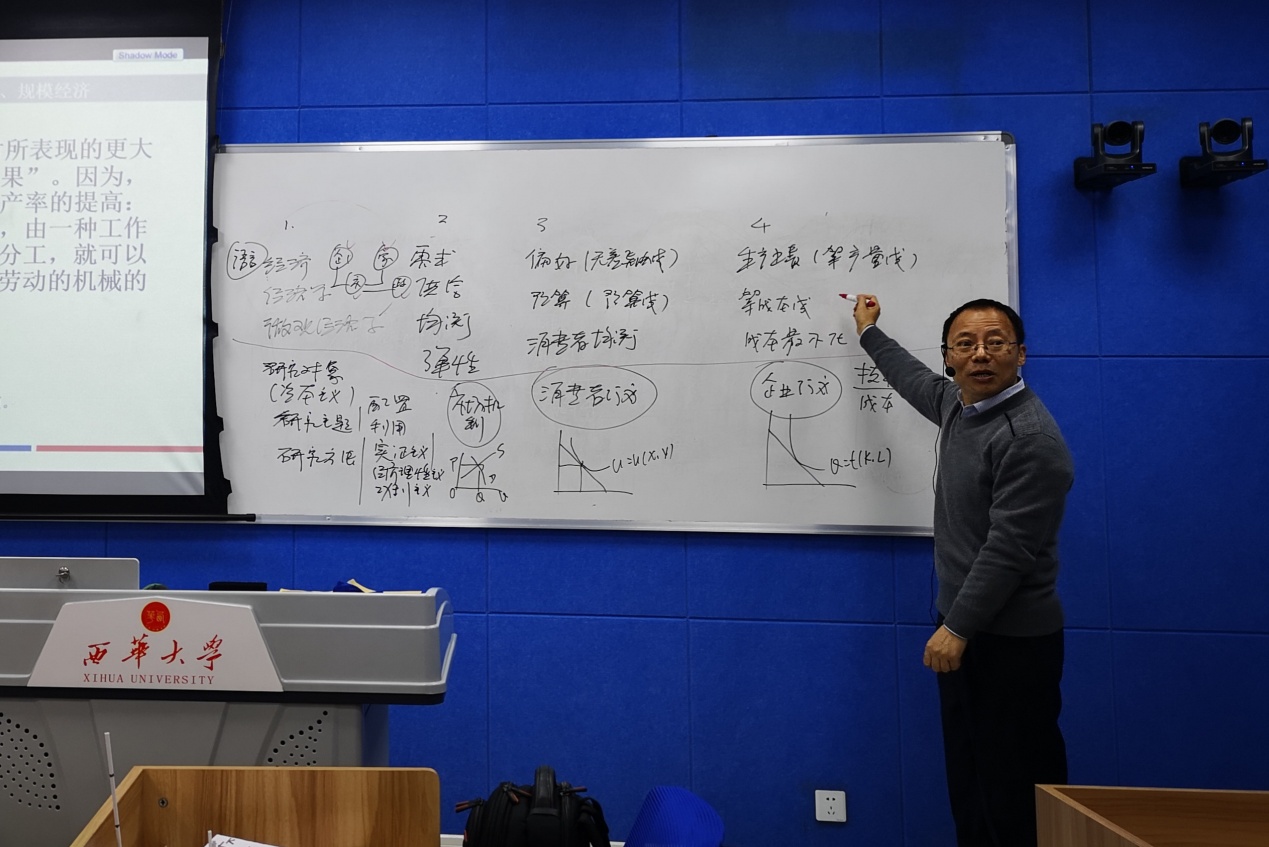 Shadow Mode
、规模经济
所表现的更大
果”。因为，
产率的提高：
，由一种工作
分工，就可以
劳动的机械的
1.
2
3
4
语言 经济
经济学
微观经济学
需求
供给
均衡
弹性
偏好（无差异曲线）
预算（预算线）
消费者均衡
生产士長（等产量线）
等成本线
成本最小化
研究对象
（资本主义）
研究主题
配置
利用
研究方法
实证主义
个人理性主义
均衡主义
市场机制
消费者行为
企业行为
技
成本
P
S
D
O
Q
U=U(X,Y)
Q=f(K,L)
西華大学
XIHUA UNIVERSITY